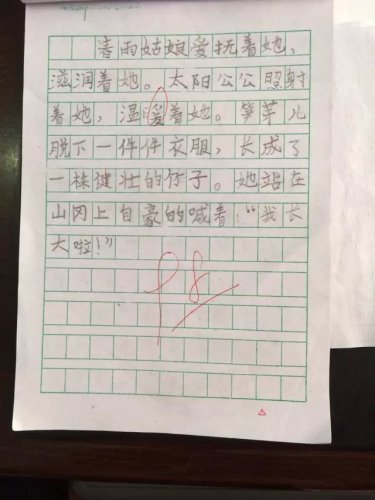 春雨姑娘爱抚着她,
滋润着她。太阳公公照射
着她,温暖着她。笋芽儿
脱下一件件衣服,长成了
一株健壮的竹子。她站在
山冈上自豪的喊着:“我长
大啦!”